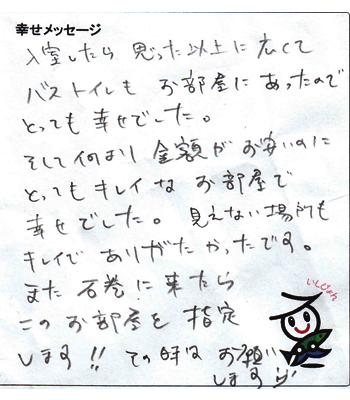 幸せメッセージ
入室したら 思った以上に広くて
バストイレも お部屋にあったので
とっても幸せでした。
そして何より 金額がお安いのに
とってもキレイな お部屋で
幸せでした。 見えない場所も
キレイで ありがたかったです。
また 石巻に来たら
このお部屋を 指定
します!! その時は お願い
します
いしぴょん